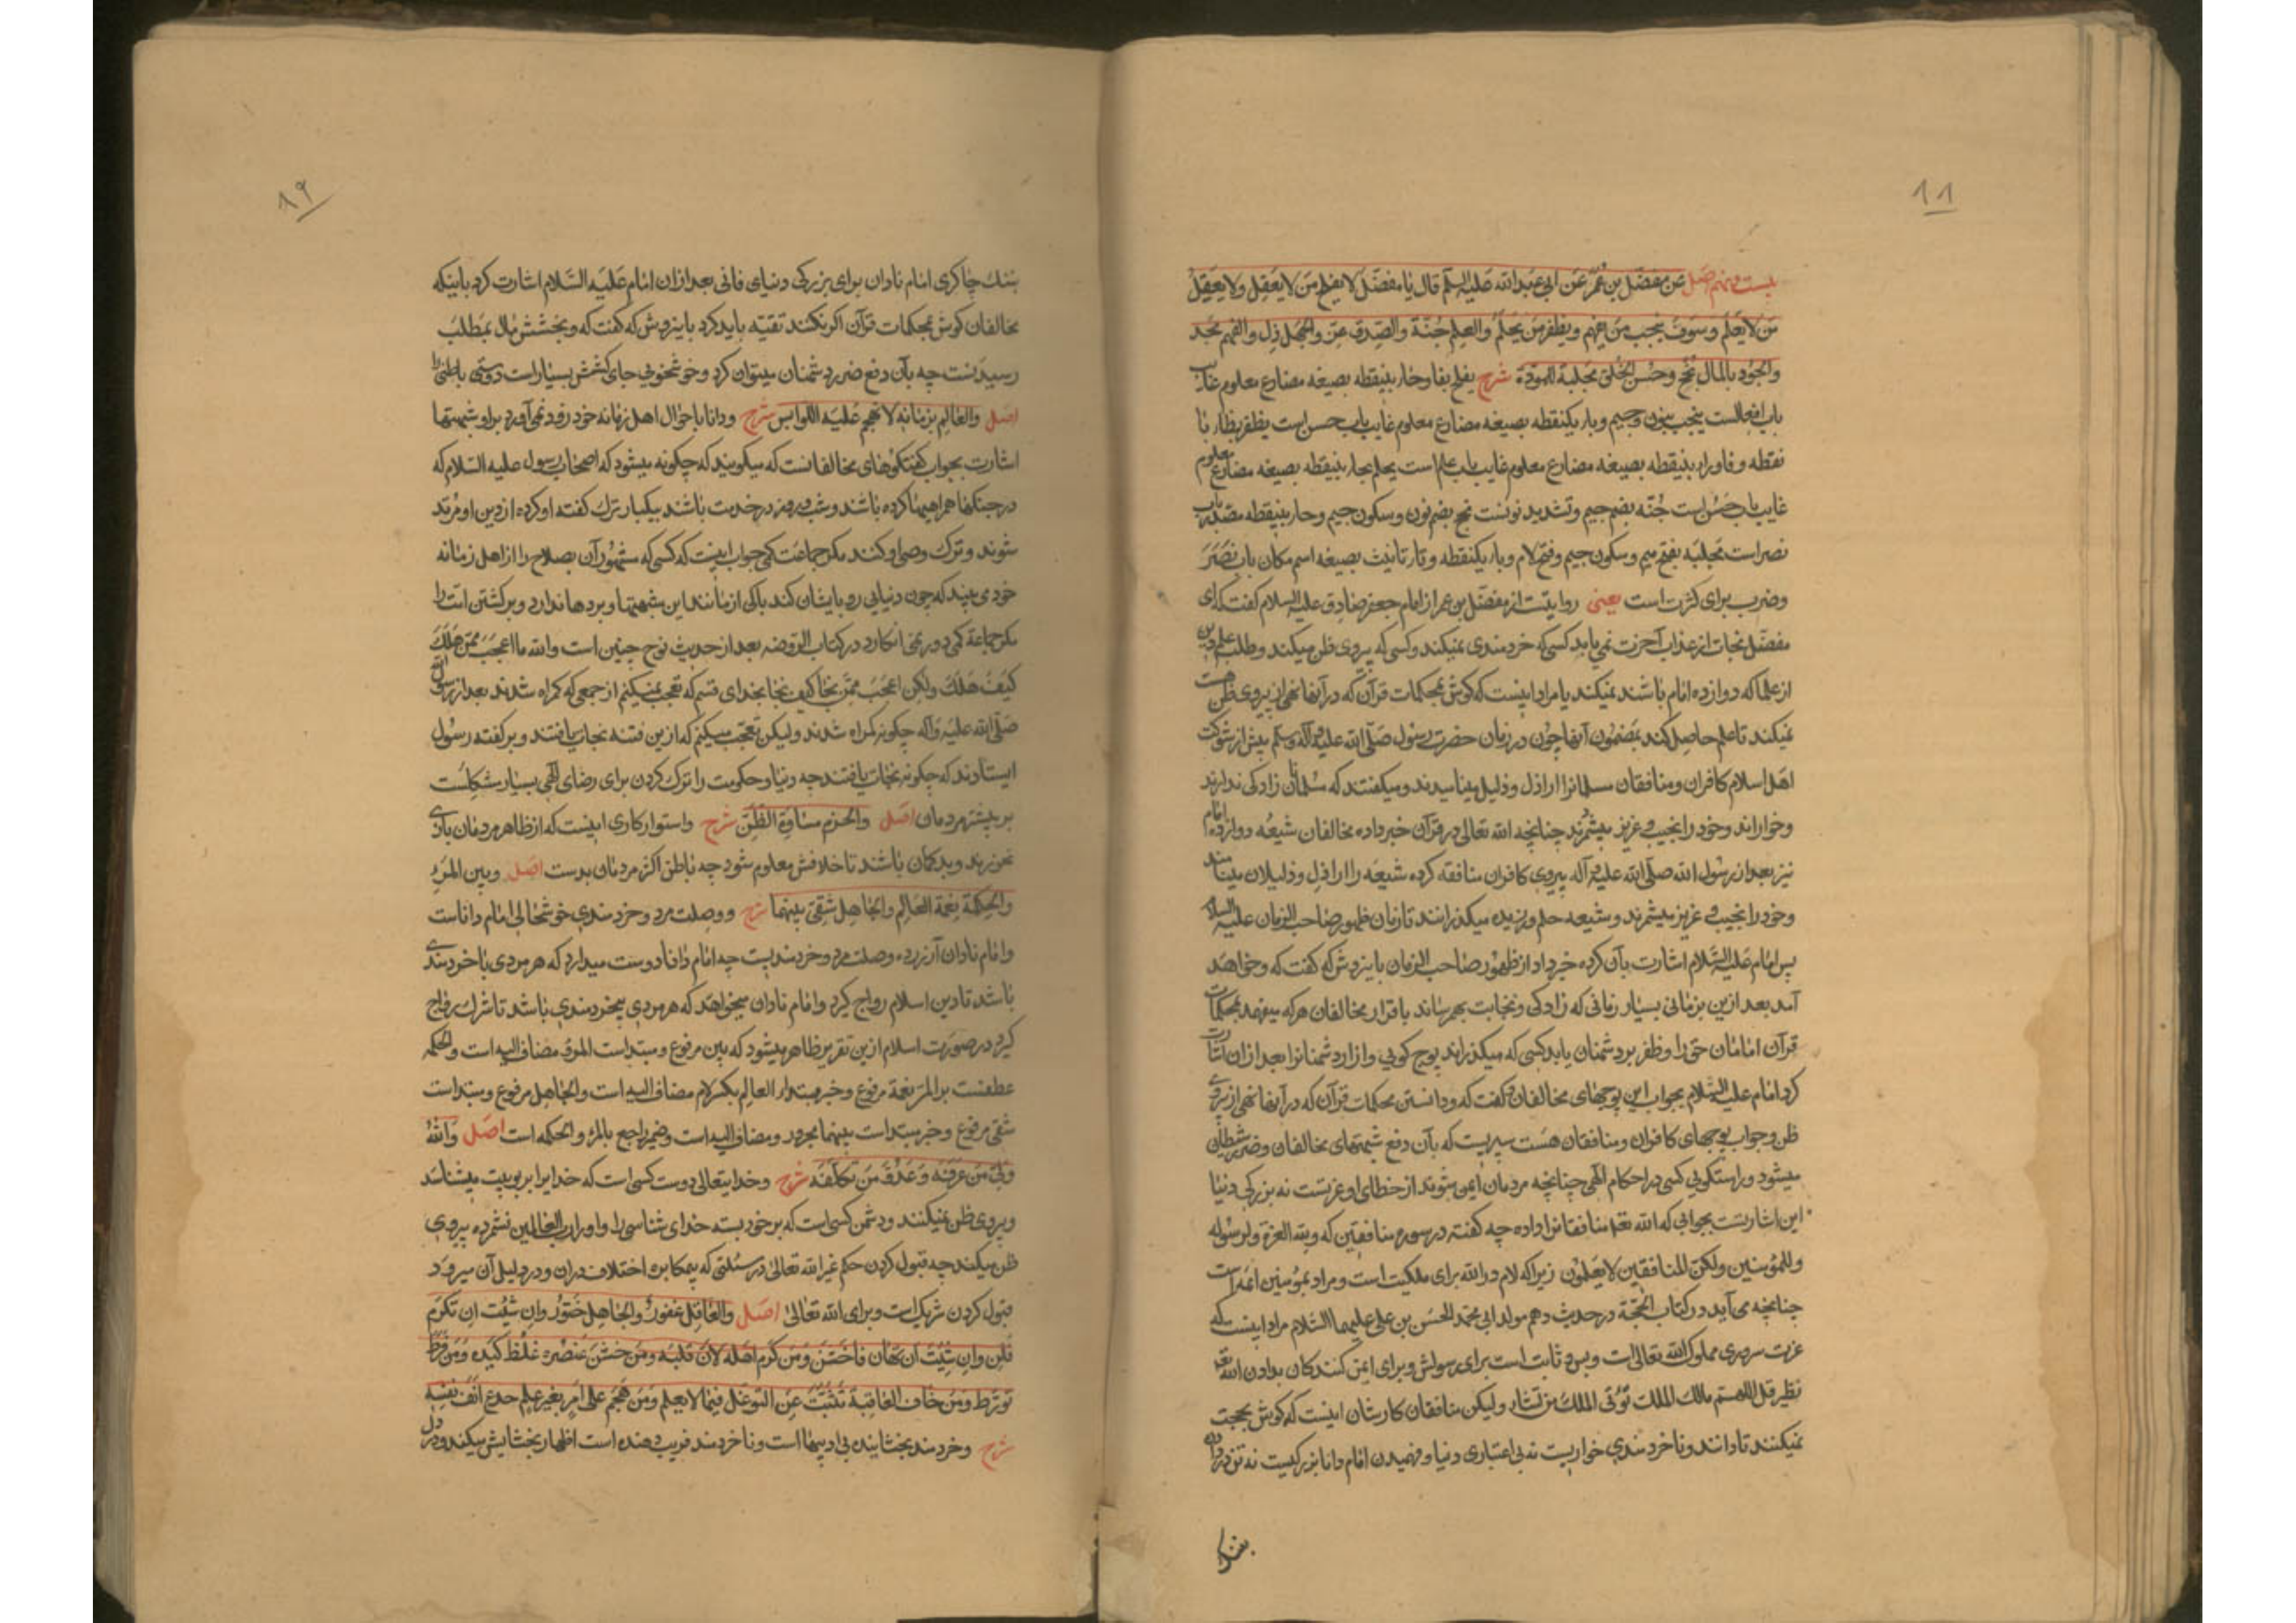 ۸۸
بیست و نهم اصل عن مفضّل بن عُمَر عَن ابی عبدالله علیه السلم قال یا مفضّل لا یفلح مَن لا یَعقِل ولا یَعقِلُ
مَن لا یَعلَم وسَوفَ یَنجُب مَن یفهم ویظفر مَن یَحلُم والعِلم جُنّة والصّدق عزّ والجَهل ذِل والفَهم مجد
والجُود بالمال نُجح وحُسن الخُلق مَجلَبة للمودّة شرح یفلح بفا وحاء بینقطه بصیغه مضارع معلوم غایب
باب افعالست ینجب بنون وجیم وباء یکنقطه بصیغه مضارع معلوم غایب باب حسن است یظفر بظاء با
نقطه وفا وراء بینقطه بصیغه مضارع معلوم غایب باب علم است یحلم بحاء بینقطه بصیغه مضارع معلوم
غایب باب حَسُن است جُنّه بضم جیم وتشدید نونست نجح بضم نون وسکون جیم وحاء بینقطه مصدر باب
نصر است مَجلَبَه بفتح میم وسکون جیم وفتح لام وباء یکنقطه وتاء تانیث بصیغه اسم مکان باب نَصَرَ
وضرب برای کثرت است یعنی روایتست از مفضّل بن عمر از امام جعفر صادق علیه السلام گفت که ای
مفضّل نجات از عذاب آخرت نمی یابد کسی که خردمندی نمیکند وکسی که پیروی ظن میکند وطلب علم دین
از علما که دوازده امام باشند نمیکند یا مراد اینست که گوش بمحکمات قرآن که در آنها نهی از پیروی ظن هست
نمیکند تا علم حاصل کند بمضمون آنها چون در زمان حضرت رسول صلّی الله علیه وآله وسلم پیش از شوکت
اهل اسلام کافران ومنافقان مسلمانانرا اراذل وذلیل مینامیدند ومیگفتند که مسلمانان زادکی ندارند
وخواراند وخود را نجیب وعزیز میشمردند چنانچه الله تعالی در قرآن خبر داده مخالفان شیعهٔ دوازده امام
نیز بعد از رسول الله صلّی الله علیه وآله پیروی کافران منافقه کرده شیعه را اراذل وذلیلان مینامند
وخود را نجیب وعزیز میشمرند وشیعه حلم ورزیده میگذرانند تا زمان ظهور صاحب الزمان علیه السلام
پس امام علیه السّلام اشارت بآن کرده خبر داد از ظهور صاحب الزمان باینروش که گفت که وخواهد
آمد بعد ازین بزمانی بسیار زمانی که زادکی ونجابت بهم رساند باقرار مخالفان هرکه میفهمد محکمات
قرآن امامان حق را وظفر بر دشمنان یابد کسی که میگذراند پوچ کویی وازار دشمنانرا بعد از ان اشارت
کرد امام علیه السّلام بجواب این پوچهای مخالفان وگفت که ودانستن محکمات قرآن که در آنها نهی از پیروی
ظن وجواب پوچهای کافران ومنافقان هست سپریست که بآن دفع شبهتهای مخالفان وضرر شیطان
میشود وراستگویی کسی در احکام الهی چنانچه مردمان ایمن شوند از خطای او عزتست نه بزرکی دنیا
این اشارتست بجوابی که الله تعالی منافقانرا داده چه گفته در سوره منافقین که ولله العزة ولرسوله
وللمؤمنین ولکنّ المنافقین لا یعلمون زیرا که لام در الله برای ملکیت است ومراد بمؤمنین ائمه است
چنانچه می آید در کتاب الحجّة در حدیث دهم مولد ابی محمد الحسن بن علی علیهما السّلام مراد اینست که
عزت سروری مملوک الله تعالی است وبس وثابت است برای رسولش وبرای ایمن کنندکان بدادن الله تعالی
نظیر قل اللهمّ مالک الملک تؤتی الملک من تشاء ولیکن منافقان کارشان اینست که گوش بحجت
نمیکنند تا دانند وناخردمندی خواریست نه بی اعتباری دنیا وفهمیدن امام دانا بزرکیست نه تن در دادن
بننک
۸۹
بننک چاکری امام نادان برای بزرکی دنیای فانی بعد از ان امام علیه السّلام اشارت کرد باینکه
مخالفان گوش بمحکمات قرآن اگر نکنند تقیّه باید کرد باینروش که گفت که وبخشش مال بمطلب
رسیدنست چه بآن دفع ضرر دشمنان میتوان کرد وخوشخویی جای کشش بسیار است دوستی باطنی را
اصل والعالِم بزمانه لا تهجم علیه اللوابس شرح ودانا باحوال اهل زمانه خود فرود نمی آورد براو شبهتها
اشارت بجواب گفتگوهای مخالفانست که میگویند که چگونه میشود که اصحاب رسول علیه السّلام که
در جنگها همراهیها کرده باشند وشب وروز در خدمت باشند بیکبار ترک گفته او کرده از دین او مرتد
شوند وترک وصی او کنند مگر جماعت کمی جواب اینست که کسی که مشهور آن بصلاح را از اهل زمانه
خود می بیند که چون دنیایی رو بایشان کند باکی از مانند این شبهتها وبردها ندارد وبرگشتن امت را
مگر جماعة کمی دور نمی انکارد در کتاب الروضه بعد از حدیث نوح چنین است والله ما اعجَبَ ممّن هَلَکَ
کیفَ هَلَکَ ولکن اعجَبَ ممّن نجا کیف نجا بخدای قسم که تعجب نمیکنم از جمعی که گمراه شدند بعد از رسول الله
صلّی الله علیه وآله چگونه گمراه شدند ولیکن تعجّب میکنم که ازین فتنه نجات یافتند وبر گفته رسول
ایستادند که چگونه نجات یافتند چه دنیا وحکومت را ترک کردن برای رضای الهی بسیار مشکلست
بر بیشتر مردمان اصل والحزم مساوة الظنّ شرح واستوار کاری اینست که از ظاهر مردمان بازی
نخورند وبدگمان باشند تا خلافش معلوم شود چه باطن اکثر مردمان بد است اصل وبین المرء
والحکمة نعمة العالِم والجاهل شقی بینهما شرح ووصلت مرد وخردمندی خوشحالی امام داناست
وامام نادان آزرده وصلت مرد وخردمندیست چه امام دانا دوست میدارد که هر مردی با خردمندی
باشد تا دین اسلام رواج گیرد وامام نادان میخواهد که هر مردی بیخردمندی باشد تا شرک رواج
گیرد در صورت اسلام ازین تقریر ظاهر میشود که بین مرفوع ومبتداست المرء مضاف الیه است والحکمه
عطفست بر المرء نعمة مرفوع وخبر مبتداء العالِم بکسر لام مضاف الیه است والجاهل مرفوع ومبتداست
شقی مرفوع وخبر مبتداست بینهما مجرور ومضاف الیه است وضمیر راجع بالمرء والحکمه است اصل والله
ولیّ مَن عَرَفَه وَعَدُوّ مَن تَکَلّفَه شرح وخدایتعالی دوست کسی است که خدایرا بربوبیت میشناسد
وپیروی ظن نمیکنند ودشمن کسی است که برخود بسته خدای شناسی را واورا رب العالمین نشمرده پیروی
ظن میکند چه قبول کردن حکم غیر الله تعالی در مسئلتی که بیمکابره اختلاف دران ودر دلیل آن میرود
قبول کردن شریک است وبرای الله تعالی اصل والعاقِل غفورٌ والجاهل خَتورٌ وان شئت ان تکرم
فَلِن وان شئت ان تهان فاخشن ومَن کَرُم اصله لانَ قلبه ومَن خَشُنَ عنصره غلُظ کبده ومَن فرّط
تورّط ومَن خافَ العاقبة تثبّتَ عن التوغّل فیما لا یعلم ومَن هَجَم علی امر بغیر علم جدع انفَ نفسه
شرح وخردمند بخشاینده بی ادبیها است وناخردمند فریب دهنده است اظهار بخشایش میکند ودر دل